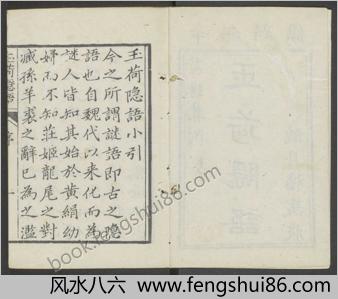 玉荷隱語小引
今之所謂謎語即古之隱
語也自魏代以來化而為
謎人皆知其始於黃絹幼
婦而不知莊姬龍尾之對
臧孫羊裘之辭已為之濫
玉荷隱語
序
一
book.fengshui86.com
风水八六 www.fengshui86.com